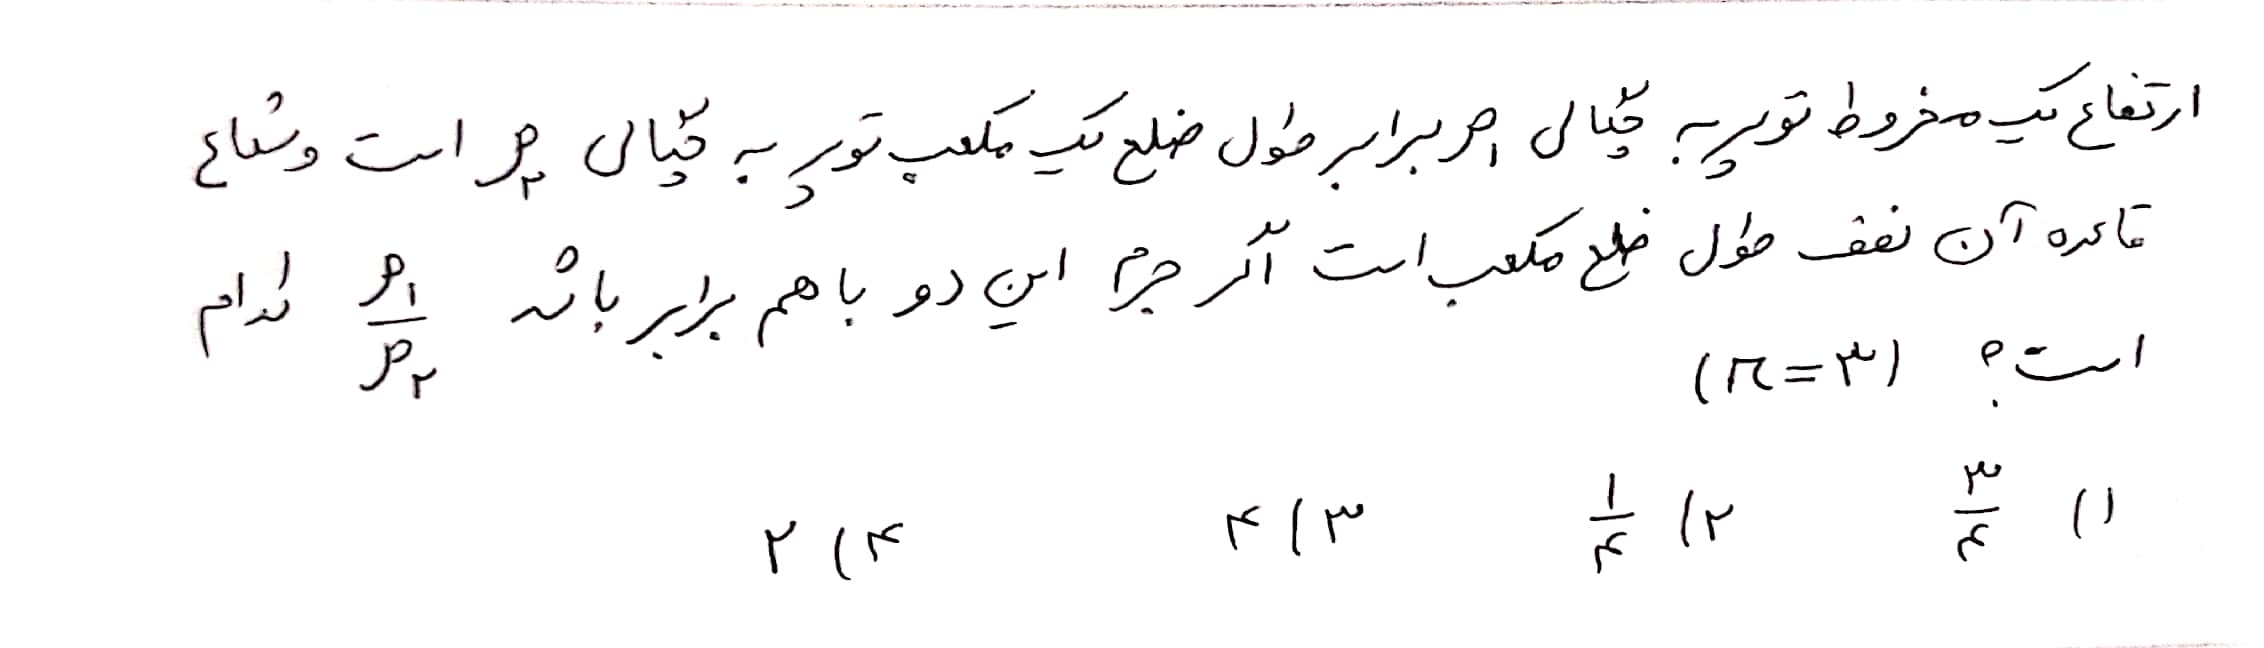 ارتفاع یک مخروط توپر به چگالی ρ۱ برابر طول ضلع یک مکعب توپر به چگالی ρ۲ است و شعاع
قاعده آن نصف طول ضلع مکعب است اگر جرم این دو با هم برابر باشد ρ۱/ρ۲ کدام
است؟ (π=۳)
۱) ۳/۴ ۲) ۱/۴ ۳) ۴ ۴) ۲